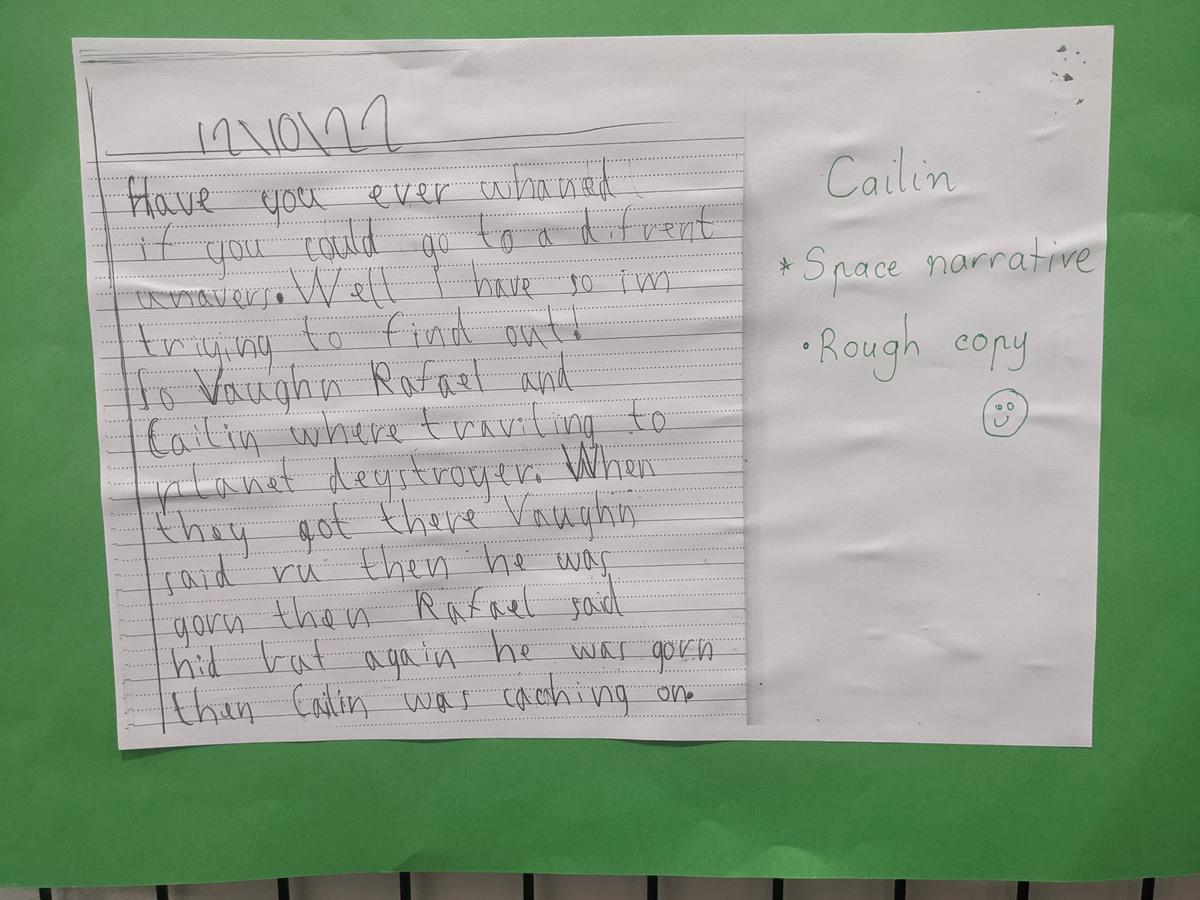 12\10\22
Have you ever whaned
if you could go to a difrent
unavers. Well I have so im
triying to find out!
So Vaughn Rafael and
Cailin where traviling to
planet deystroyer. When
they got there Vaughn
said ru then he was
gorn then Rafael said
hid but again he was gorn
then Cailin was caching on.
Cailin
* Space narrative
• Rough copy